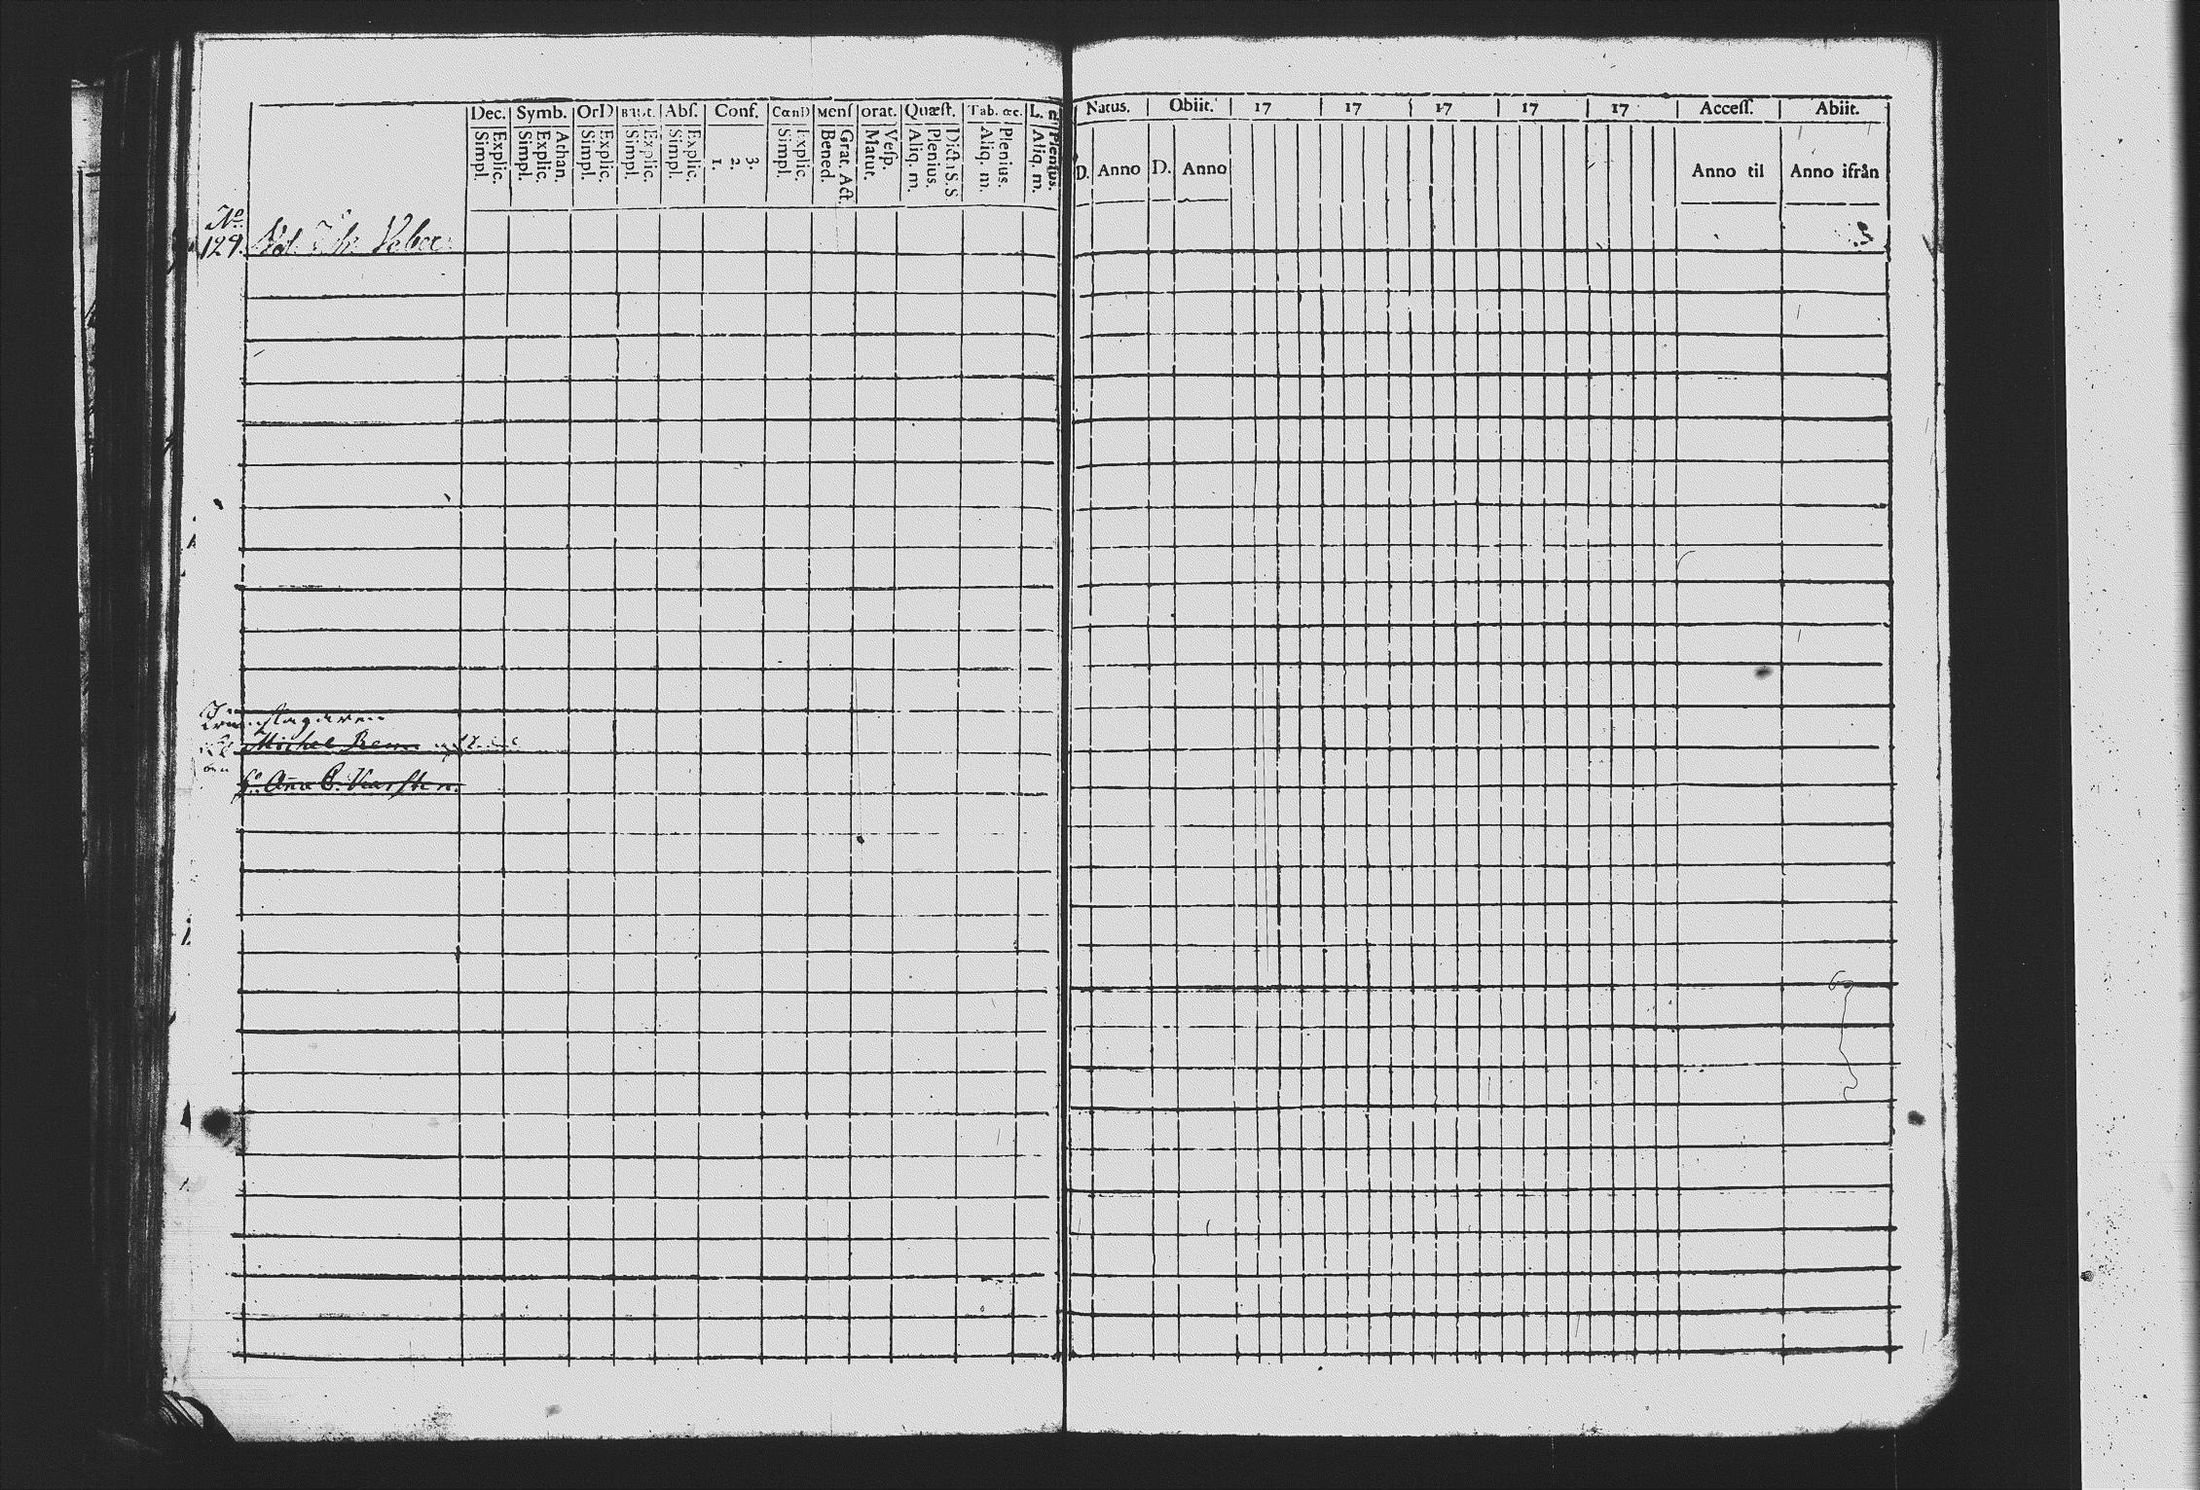 Dec. Symb. OrD Bapt. Abſ. Conf. CœnD Menſ orat. Quæſt. Tab. œc. L. n
Simpl. Explic. Simpl. Explic. Athan. Simpl. Explic. Simpl. Explic. Simpl. Explic. 1. 2. 3. Simpl. Explic. Bened. Grat. Act. Matut. Veſp. Aliq. m. Plenius. Dict. S. S Aliq. m. Plenius. Aliq. m. Plenius.
No
129.
Michel
Anna
Natus. Obiit. 17 17 17 17 17 Acceſſ. Abiit.
D. Anno D. Anno Anno til Anno ifrån